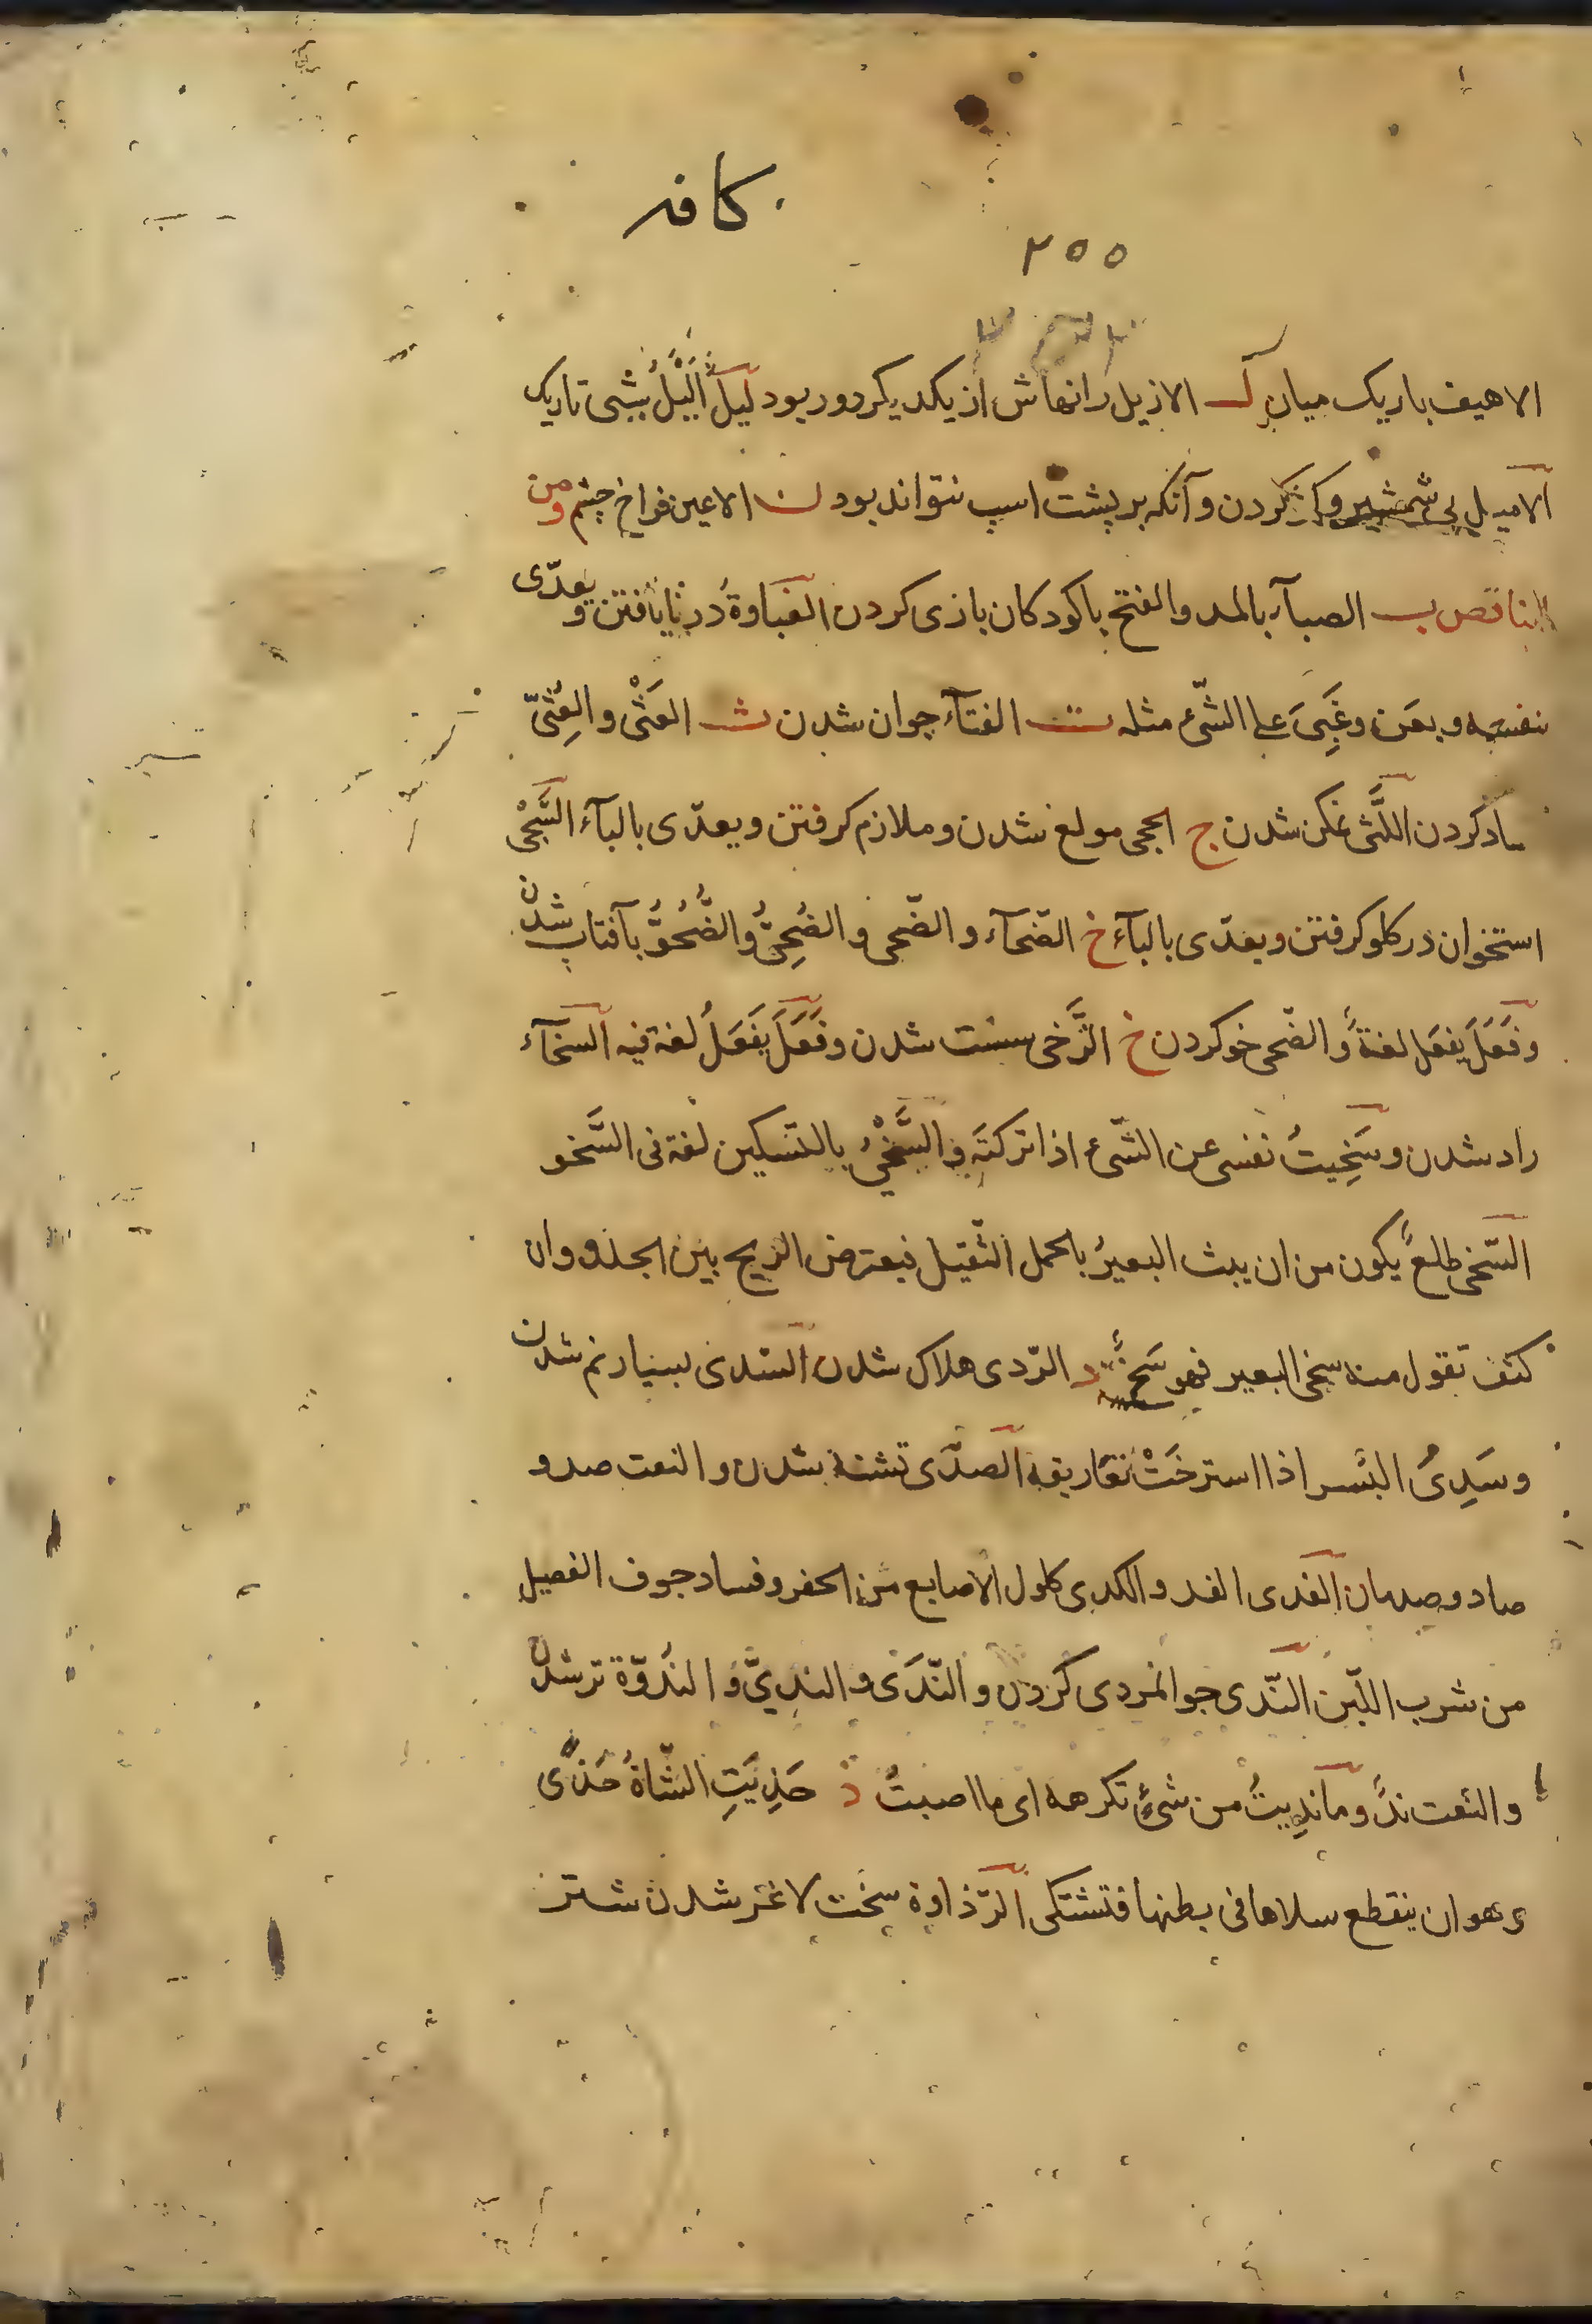 كافه
٢٥٥
الاهيف باريك ميان ل الازيل رانهاش از يكديكر دور بود ليل اَلْيَلُ شبى تاريك
الاميل بى شمشير و كردن و آنكه بر پشت اسب نتواند بود ن الاعين فراخ چشم ومن
الناقص ب الصبآء بالمد والفتح باكودكان بازى كردن الغباوة در نايافتن ويعدّى
بنفسه وبعن وغَبِىَ على الشّىء مثله ت الفتآء جوان شدن ث العَثْى والعِثىّ
ساد كردن اللَّثى نمكن شدن ج الحجى مولع شدن وملازم كرفتن ويعدّى بالبآء الشَّجْى
استخوان در كلو كرفتن ويعدّى بالبآء خ الضّحآء والضّحى والضُحِىُّ والضُّحُوُّ بآفتاب شدن
وفَعَلَ يفعَل لغةً والضّحى خو كردن خ الرَّخى سست شدن وفَعَلَ يَفعَلُ لغة فيه السخآء
راد شدن وسَخِيتُ نفسى عن الشّىء اذا تركتَه والسَّخْىُ بالتسكين لغة فى السَّخو
السّخى ظلعٌ يكون من ان يبث البعيرُ بالحمل الثّقيل فيعترض الريح بين الجلد وان
كتف تقول منه سخى البعير فهو سَخٍ د الرّدى هلاك شدن السّدى بسيار نم شدن
وسَدِىَ البُسر اذا استرخَتْ تفاريقه الصدَى تشنه شدن والنعت صد و
صاد وصديان الغدى الغد والكدى كلول الاصابع من الحفر وفساد جوف الفصيل
من شرب اللّبن النّدى جوانمردى كردن والنّدَى والندِىّ والنُدوّة تر شدن
والنّعت ندٍ وما ندِيتُ من شىءٍ تكرهه اى ما اصبتُ ذ حَذِيَتِ الشّاةُ حَذًى
وهو ان ينقطع سلاها فى بطنها فتشتكى الرّذاوة سخت لاغر شدن شتر